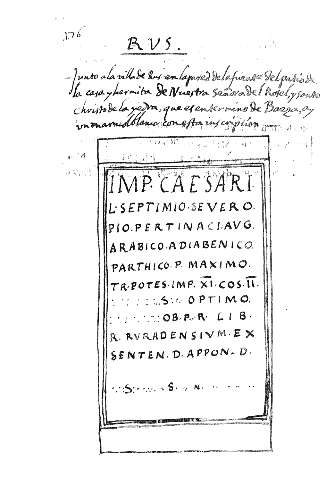 176
RVS.
Junto a la villa de Rus en la pared de la del patio de
la casa y hermita de Nuestra Señora del y Santo
Christo de la yedra, que es en termino de Baeza, ay
un marmol blanco con esta inscripcion
IMP. CAESARI.
L. SEPTIMIO. SEVERO
PIO. PERTINACI. AVG.
ARABICO. ADIABENICO.
PARTHICO. P. MAXIMO.
TR. POTES. IMP. XI. COS. II.
S OPTIMO.
OB. P. R. LIB.
R. RVRADENSIVM. EX
SENTEN. D. APPON. D.
S S